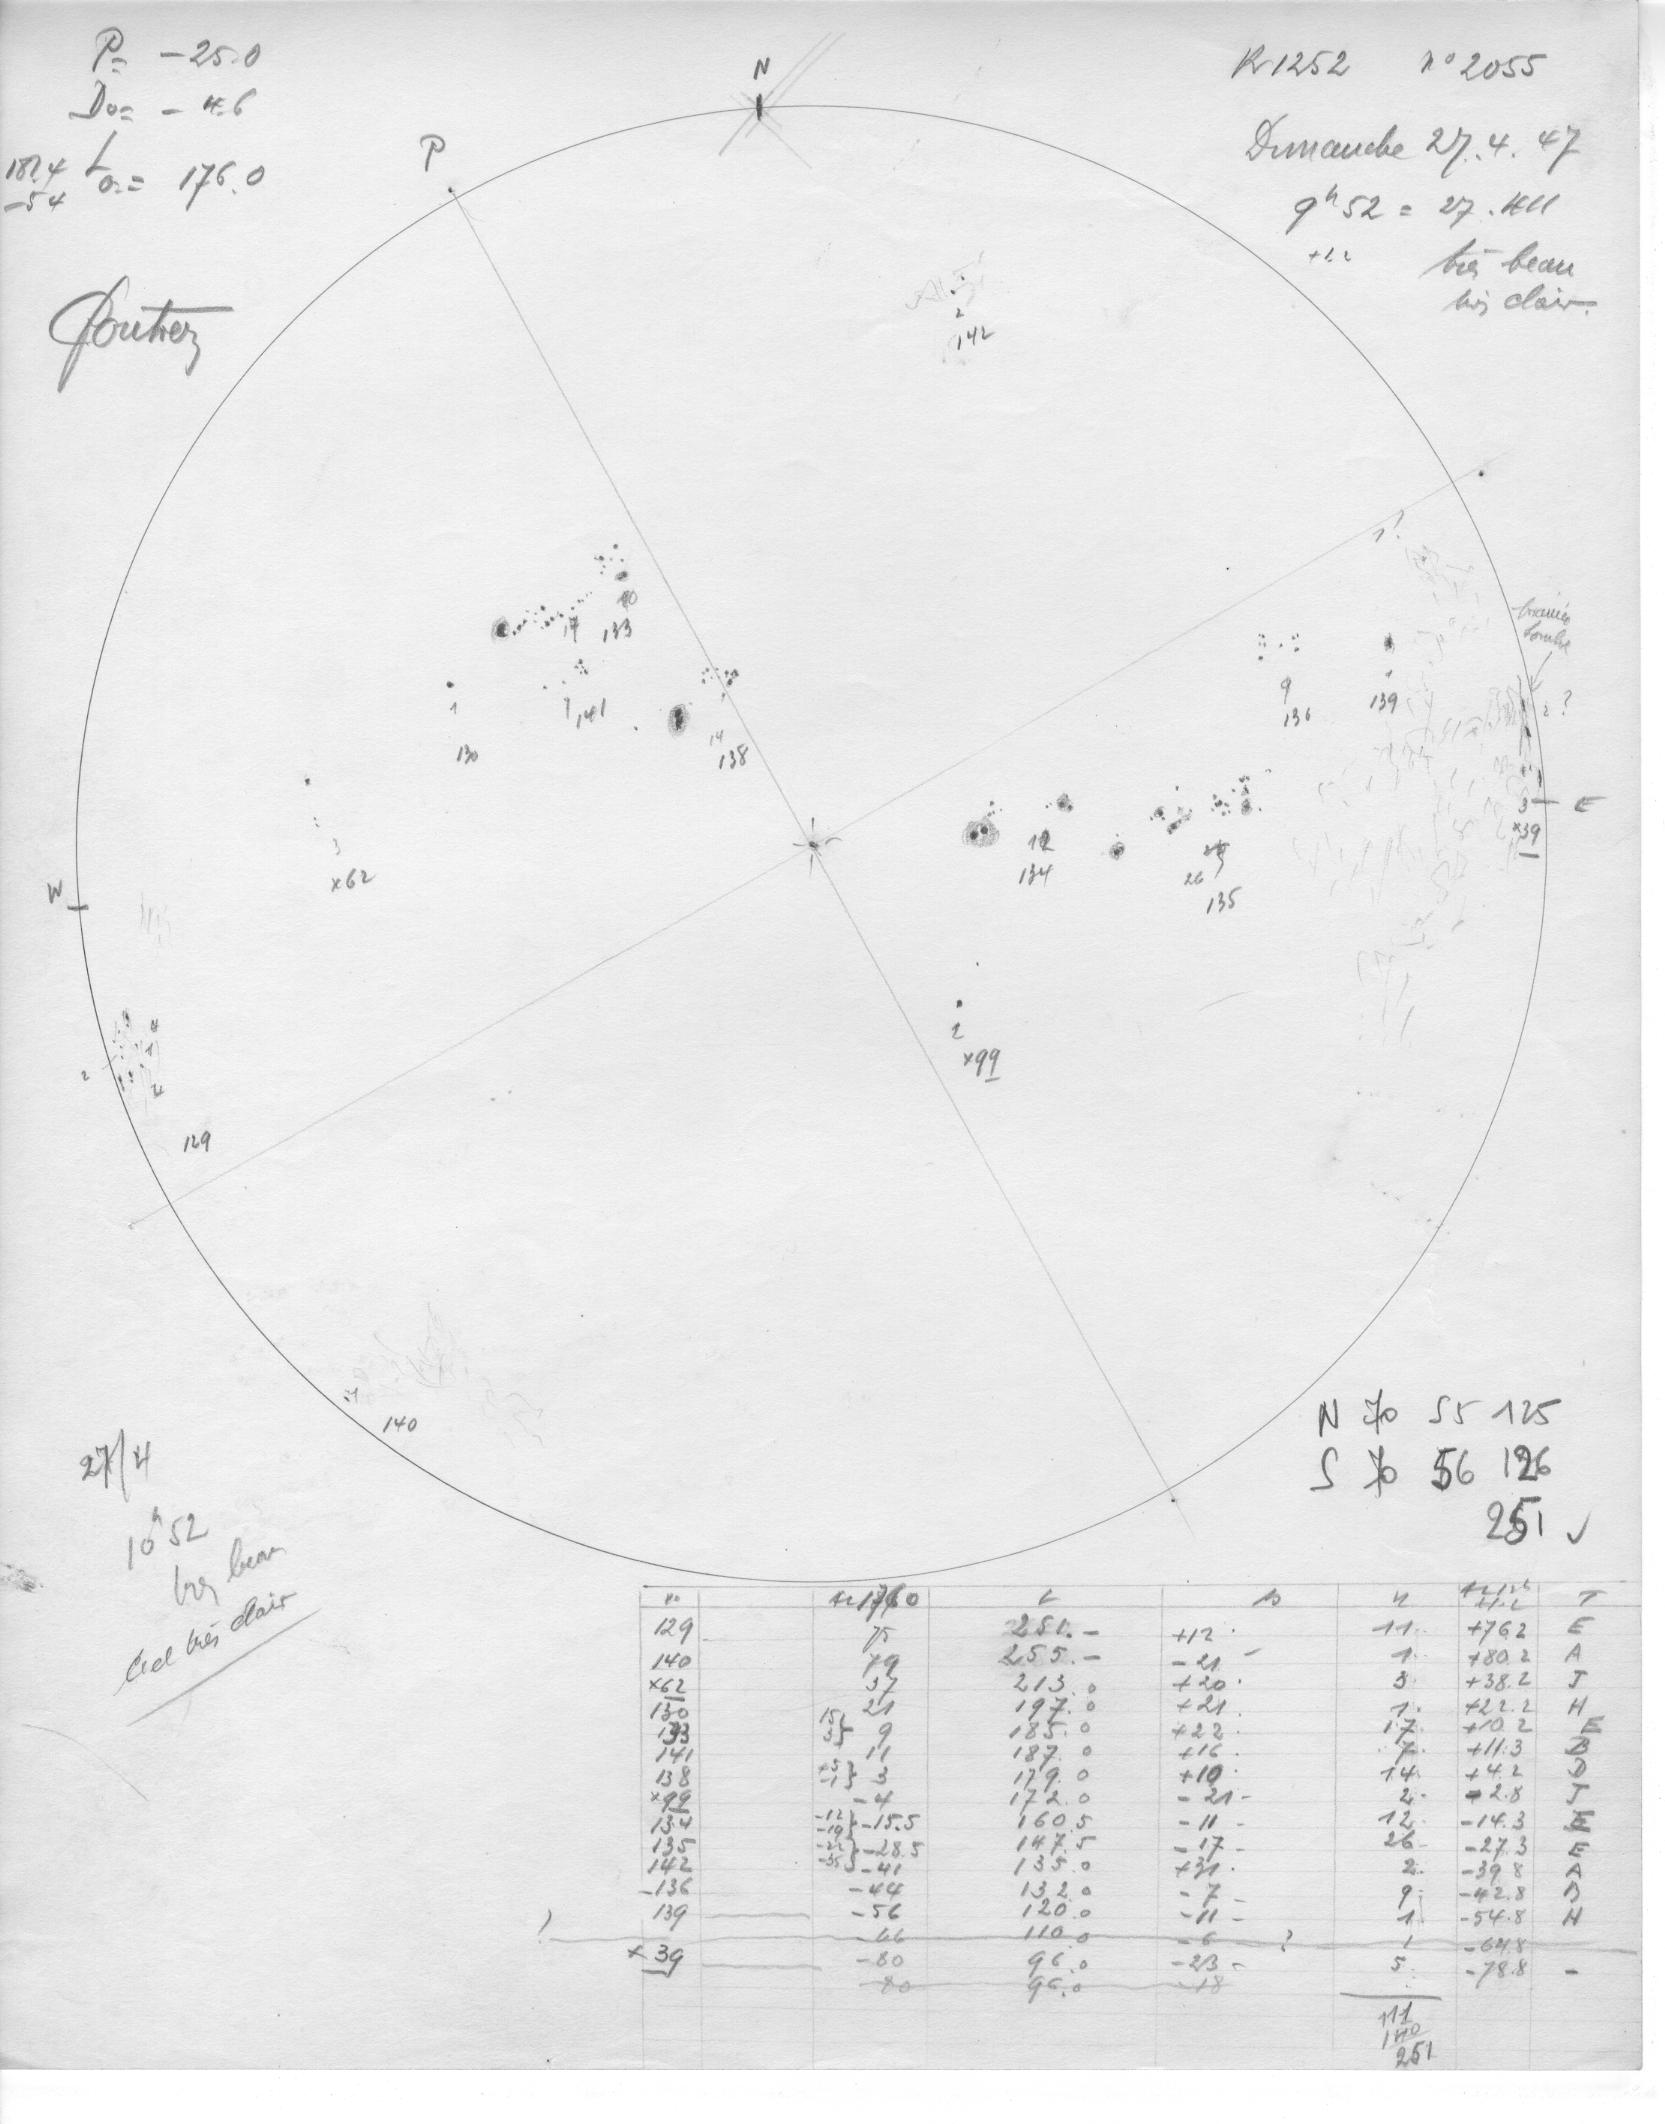 P= -25.0
D0= -4.6
L0= 176.0
181.4
-5.4
R1252 n° 2055
Dimanche 27.4.47
9h52 = 27.411
très beau
très clair
N
P
2
142
1?
10
17 133
1
130
7 141
14
138
9
136
1
139
2 ?
3 E
×39
3
×62
W
12
134
26
135
2
×99
4
1
2
2
129
1
140
27/4
10h52
très beau
ciel très clair
N 70 55 125
S 70 56 126
251 ✓
L B n T
129 75 251.- +12 11 +76.2 E
140 79 255.- -21 1 +80.2 A
×62 37 213.0 +20 3 +38.2 J
130 21 197.0 +21 1 +22.2 H
133 9 185.0 +22 17 +10.2 E
141 11 187.0 +16 7 +11.3 B
138 3 179.0 +10 14 +4.2 D
×99 -4 172.0 -21 2 -2.8 J
134 -15.5 160.5 -11 12 -14.3 E
135 -28.5 147.5 -17 26 -27.3 E
142 -41 135.0 +31 2 -39.8 A
-136 -44 132.0 -7 9 -42.8 B
139 -56 120.0 -11 1 -54.8 H
? -66 110.0 -6 ? 1 -64.8
×39 -80 96.0 -23 5 -78.8 -
-80 96.0 -18
111
140
251